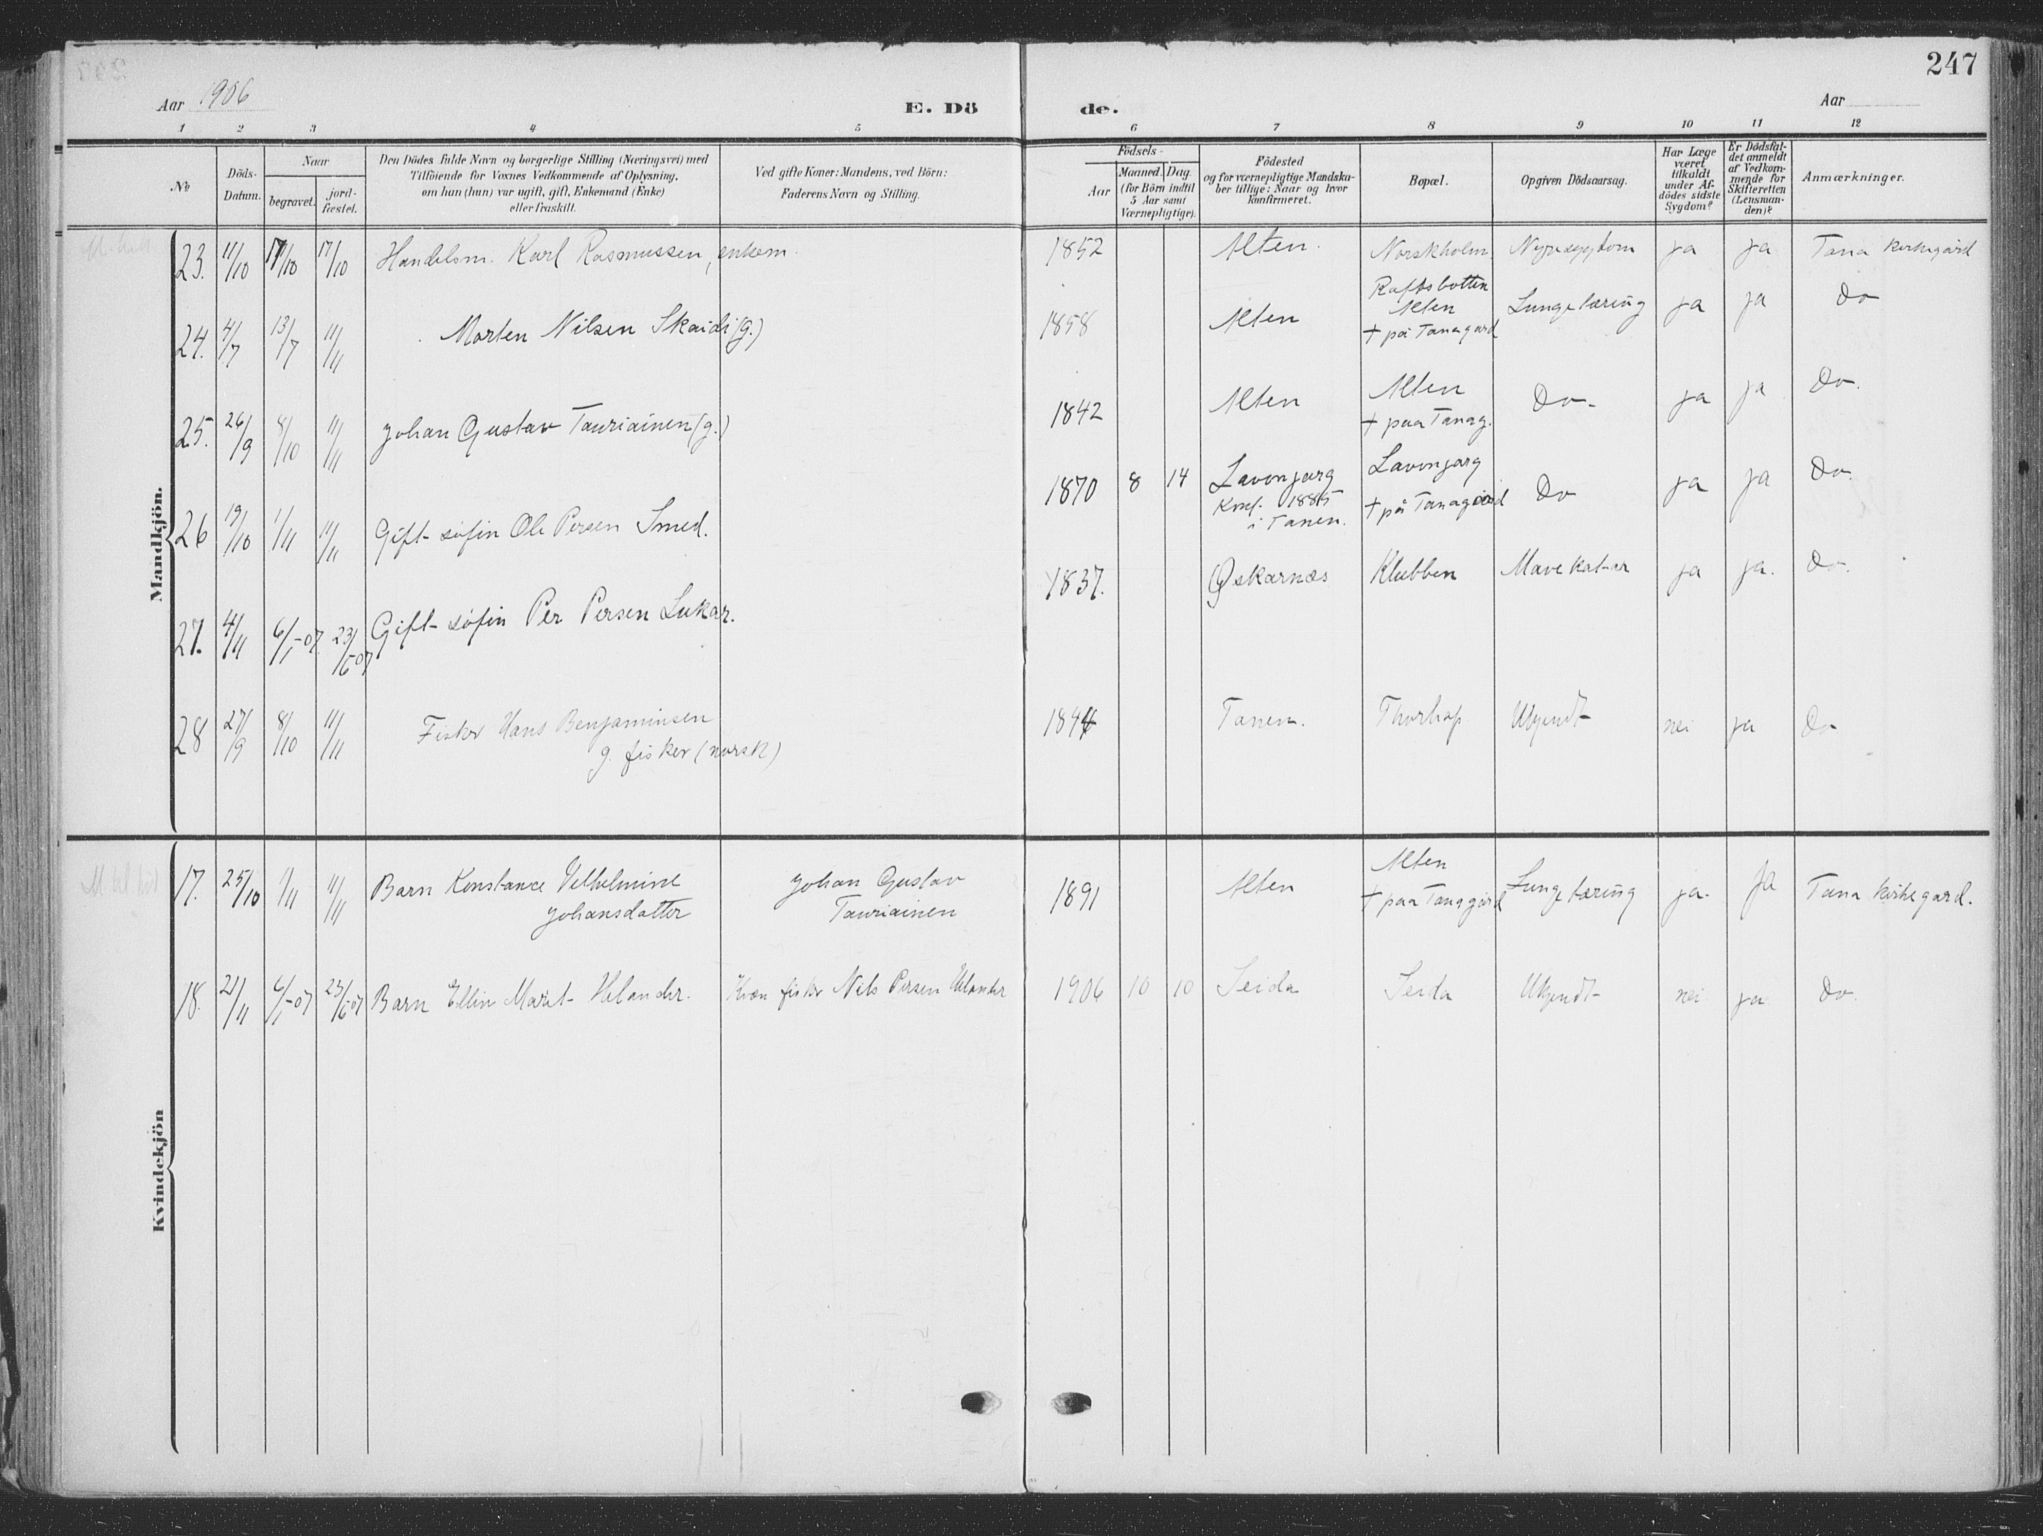 247
Aar 1906
E. Dö
de.
Aar
1 2 3 4 5 6 7 8 9 10 11 12
No
Döds-
Datum.
Naar
begravet.
jord-
fæstet.
Den Dödes fulde Navn og borgerlige Stilling (Næringsvei) med
Tilföiende for Voxnes Vedkommende af Oplysning,
om han (hun) var ugift, gift, Enkemand (Enke)
eller fraskilt.
Ved gifte Koner: Mandens, ved Börn:
Faderens Navn og Stilling.
Födsels-
Aar
Maaned. Dag.
(for Börn indtil
5 Aar samt
Værnepligtige).
Födested
og for værnepligtige Mandska-
ber tillige: Naar og hvor
konfirmeret.
Bopæl.
Opgiven Dödsaarsag.
Har Læge
været
tilkaldt
under Af-
dödes sidste
Sygdom?
Er Dödsfal-
det anmeldt
af Vedkom-
mende for
Skifteretten
(Lensman-
den)?
Anmærkninger.
Mandkjön.
23. 11/10 17/10 17/10 Handelsm. Karl Rasmussen, enkem. 1852 Alten. Norskholm Nyresygdom ja ja Tana kirkegård
24. 4/7 13/7 11/11 Morten Nilsen Skaidi (g.) 1858 Alten Rafsbotten
Alten
+ på Tanagård Lungetæring ja ja Do
25. 26/9 8/10 11/11 Johan Gustav Tauriainen (g.) 1842 Alten Alten
+ paa Tanag. Do- ja ja Do.
26 19/10 1/11 11/11 Gift søfin Ole Persen Smed. 1870 8 14 Lavonjarg
Konf. 1885
i Tanen. Lavonjarg
+ på Tanagård Do ja ja Do.
27. 4/11 6/1-07 23/6-07 Gift søfin Per Persen Lukar. 1837. Oskarnæs Klubben Mavekatar ja ja. Do.
28 27/9 8/10 11/11 Fisker Hans Benjaminsen
g. fisker (norsk) 1844 Tanen. Thorhop Ukjendt nei ja Do
Kvindekjön
17. 25/10 1/11 11/11 Barn Konstance Vilhelmine
Johansdatter Johan Gustav
Tauriainen 1891 Alten Alten
+ paa Tanagård Lungetæring ja. ja Tana kirkegård.
18. 21/11 6/1-07 23/6-07 Barn Ellin Marit Helander. Kvæn fisker Nils Persen Helander 1906 10 10 Seida Seida Ukjendt nei ja Do.